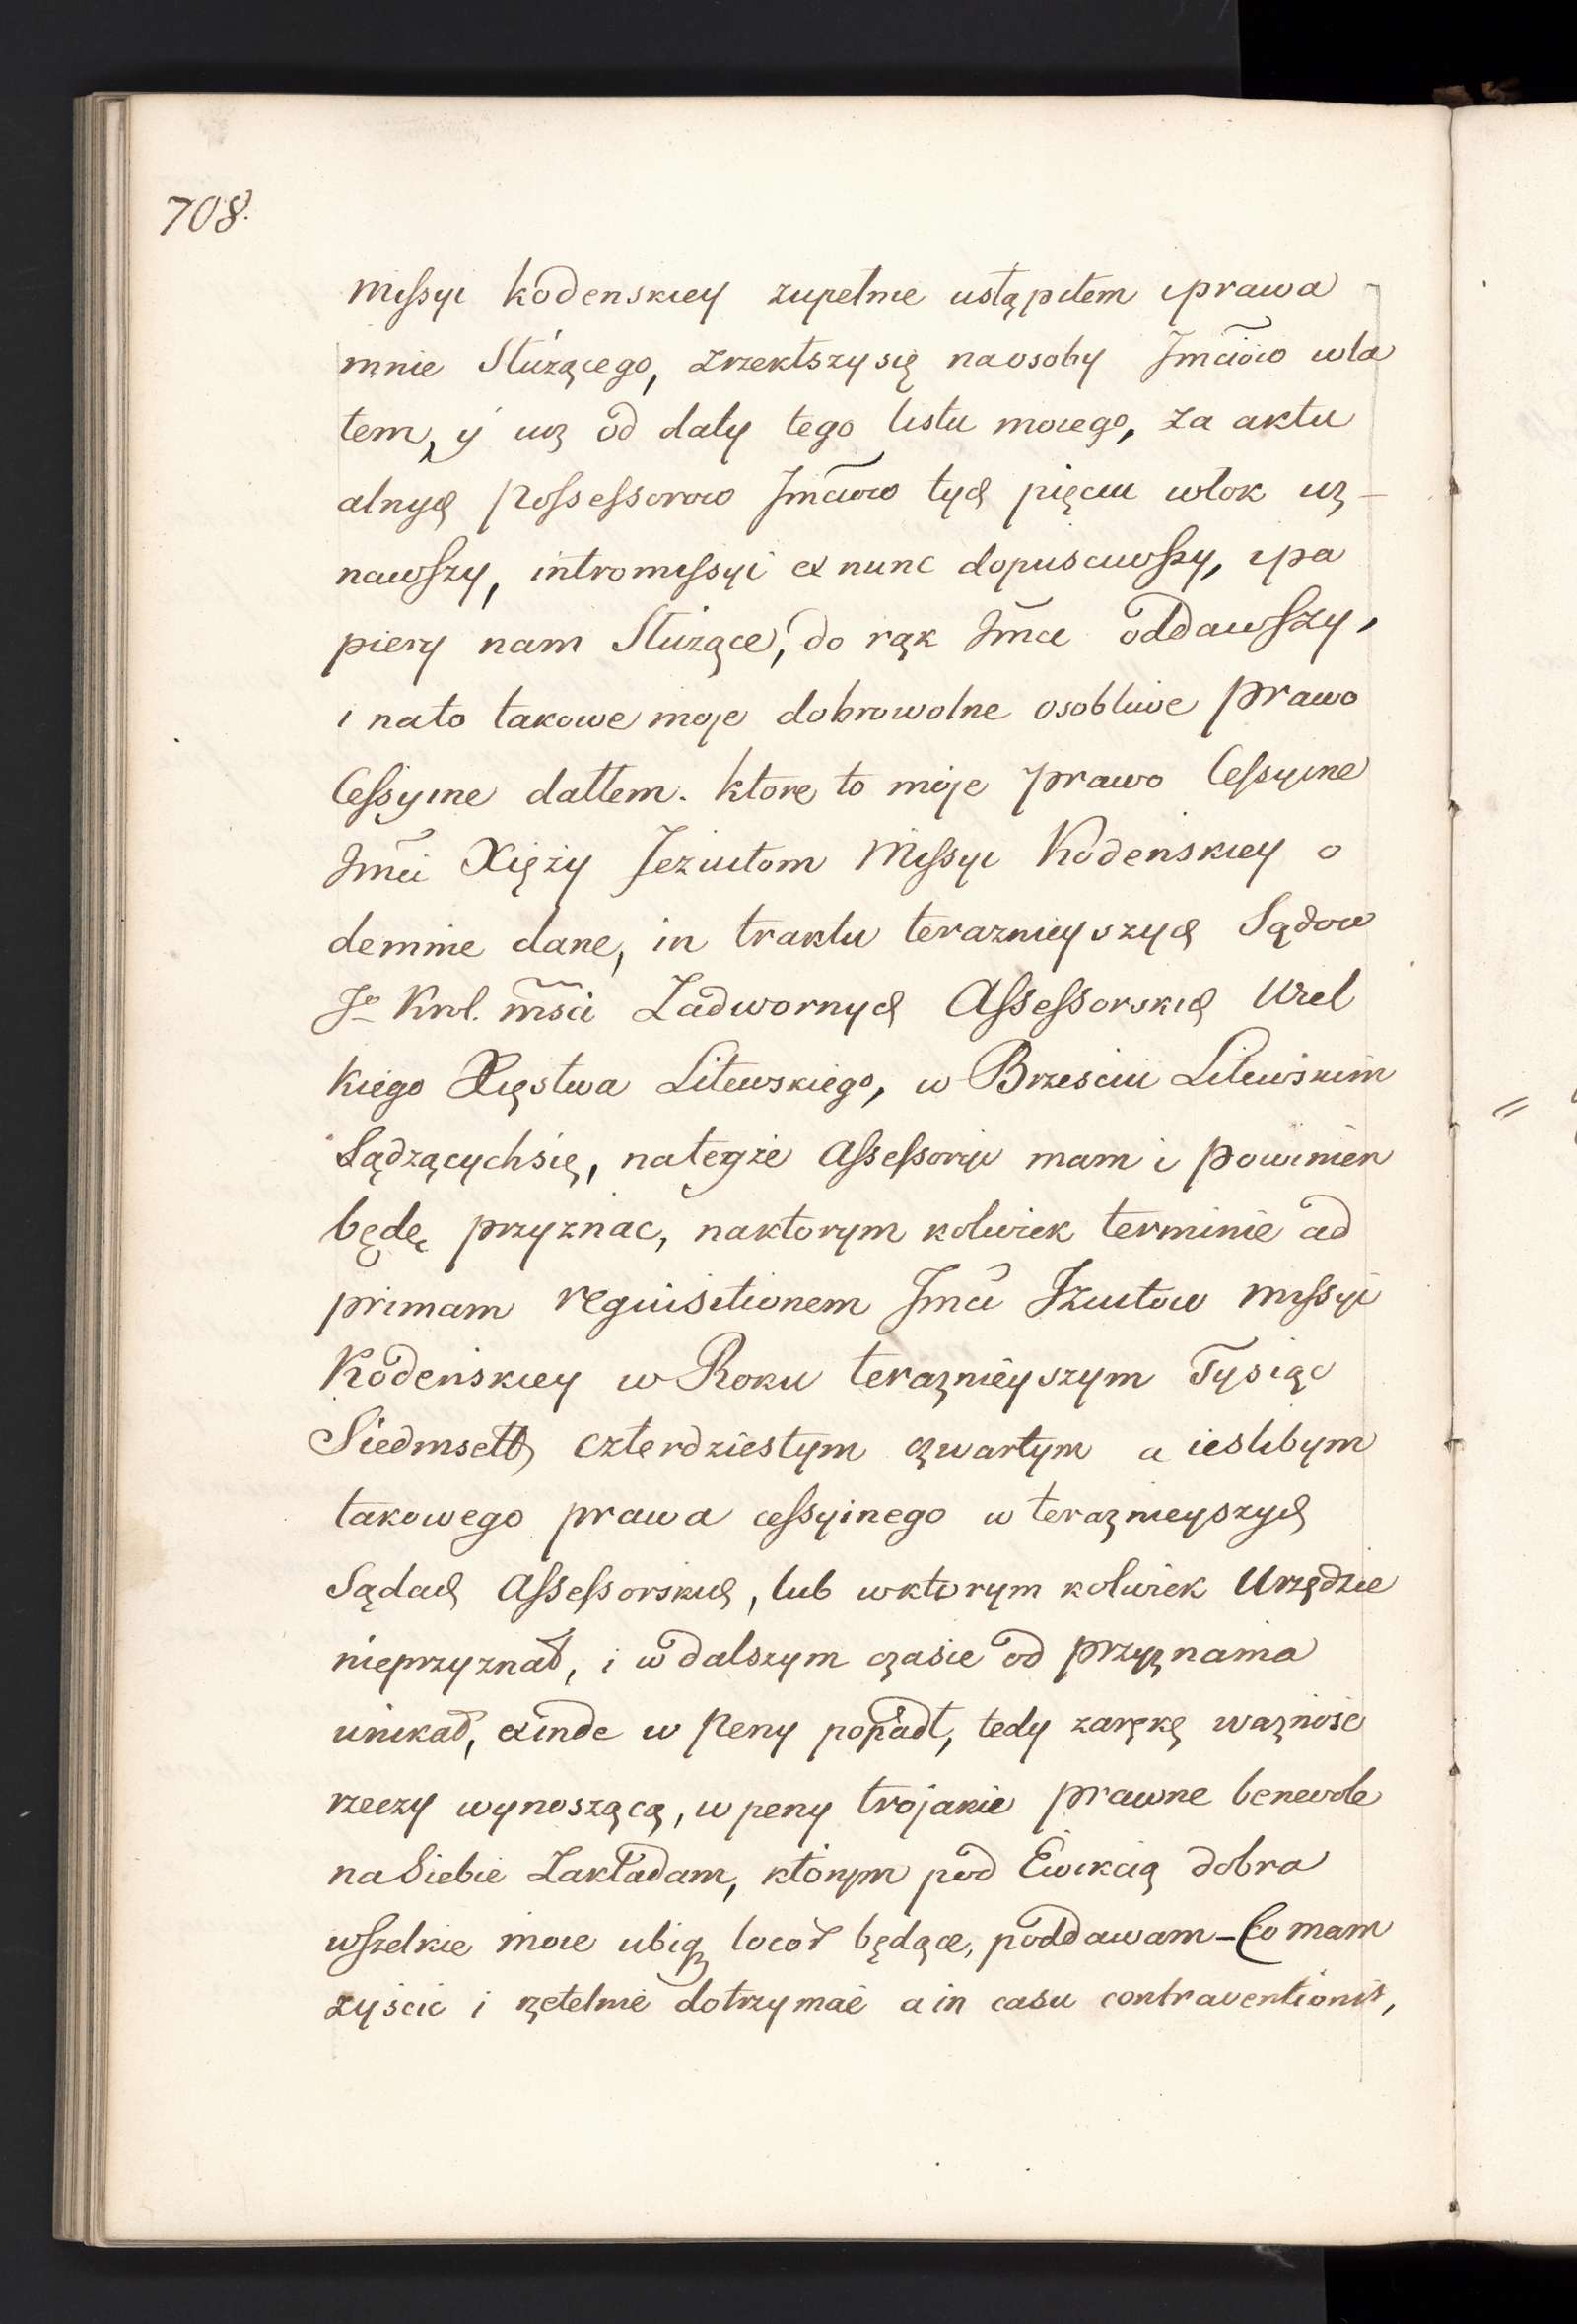 708.
missyi kodenskiey zupełnie ustąpiłem i prawa
mnie Służącego, zrzekłszy się na osoby Jmciow wla
tem, ÿ iuż od daty tego listu moiego, za aktu
alnych possessorow Jmciow tych pięciu włok uz-
nawszy, intromissyi ex nunc dopusciwszy, i pa
piery nam Służące, do rąk Jmci oddawszy,
i na to takowe moje dobrowolne osobliwe prawo
Cessyine dałłem. ktore to moje prawo Cessyine
Jmci Xięży Jezuitom Missyi Kodeńskiey o
demnie dane, in traktu teraznieyszych Sądow
Jº Krol. msci Zadwornych Assessorskich Wiel
kiego Xięstwa Litewskiego, w Brzesciu Litewskim
Sądzącychsię, na teyże Assessoryi mam i powinien
będę przyznac, na ktorym kolwiek terminie ad
primam requisitionem Jmci Jzuitow missyi
Kodeńskiey w Roku teraznieyszym Tysiąc
Siedmsett czterdziestym czwartym a ieslibym
takowego prawa cessyinego w teraznieyszych
Sądach Assessorskich, lub w ktorym kolwiek Urzędzie
nieprzyznał, i w dalszym czasie od przyznania
unikał, exinde w Peny popadł, tedy zarękę ważnośc
rzeczy wynoszącą, w peny trojakie prawne benevole
na Siebie Zakładam, ktorym pod Ewikcią dobra
wszelkie moie ubiqȝ locor będące, poddawam – Co mam
zyscic i rzetelnie dotrzymać a in casu contraventionis,